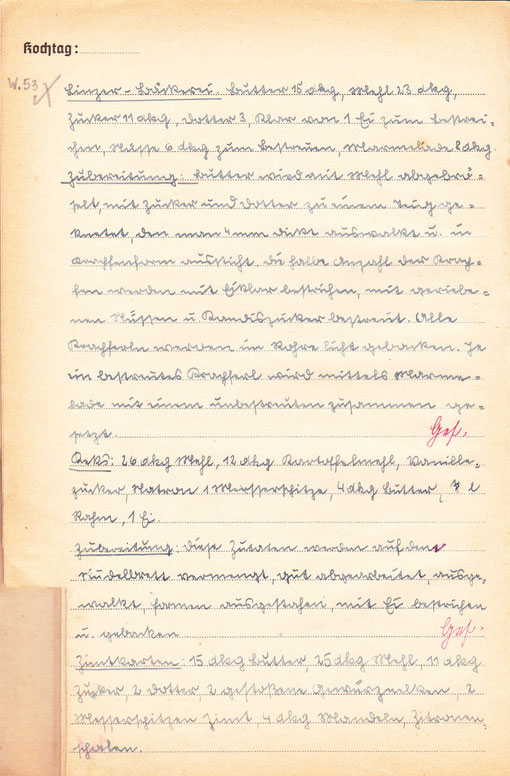 Kochtag:
W.53
Linzer-Bäckerei. Butter 15 dkg, Mehl 23 dkg,
Zucker 11 dkg, Dotter 3, Klar von 1 Ei zum bestrei-
chen, Nüsse 6 dkg zum bestreuen, Marmelade 8 dkg.
Zubereitung: Butter wird mit Mehl abgebrö-
selt, mit Zucker und Dotter zu einem Teug ge-
knetet, den man 4 mm dikt auswalkt u. in
Krachfenform aussticht. die halbe Anzahl der Krach-
fen werden mit Eiklar bestrichen, mit geriebe-
nen Nüssen u Kandiszucker bestreut. Alle
Krachferln werden im Rohre licht gebacken. Je
ein bestreutes Krachferl wird mittels Marme-
lade mit einem unbestreuten zusammen ge-
setzt.
Ges.
Keks: 26 dkg Mehl, 12 dkg Kartoffelmehl, Vanille-
zucker, Natron 1 Messerspitze, 4 dkg Butter, l
Rahm, 1 Ei.
Zubereitung: diese Zutaten werden auf dem
Nudelbrett vermengt, gut abgearbeitet, ausge-
walkt, formen ausgestohen, mit Ei bestrichen
u. gebacken
Ges.
Zimtkarten: 15 dkg Butter, 25 dkg Mehl, 11 dkg
Zucker, 2 Dotter, 2 gestoßene Gewürznelken, 2
Messerspitzen Zimt, 4 dkg Mandeln, Zitronen-
schalen.